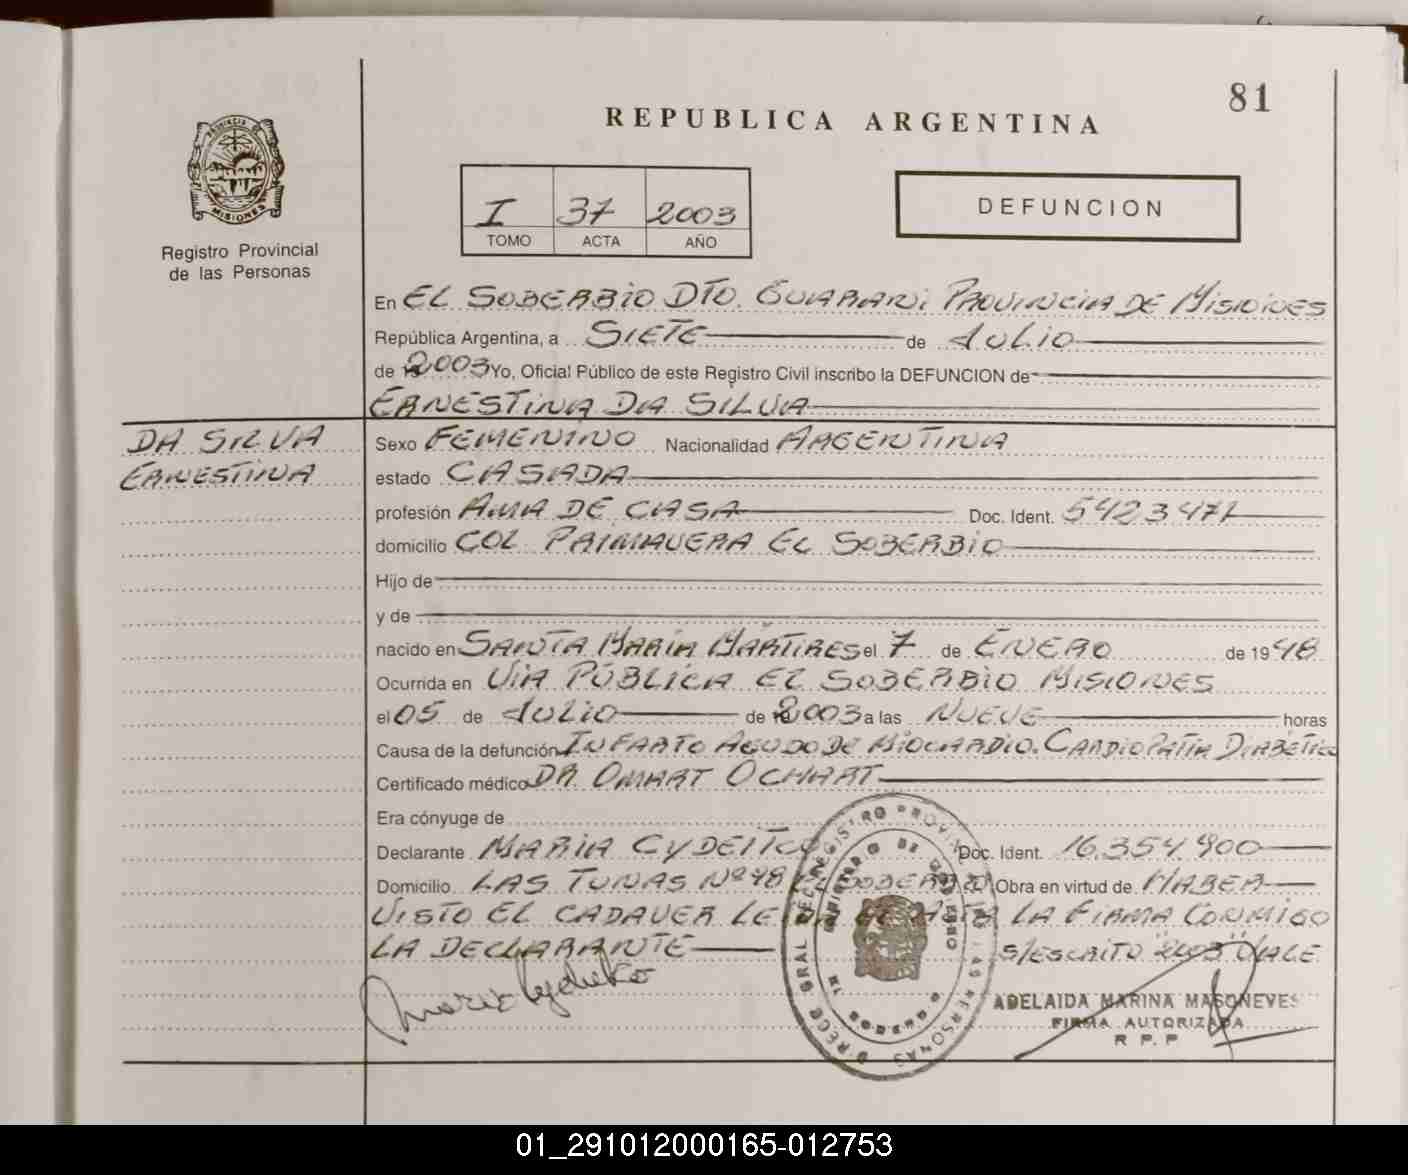 81
REPUBLICA ARGENTINA
PROVINCIA DE
MISIONES
Registro Provincial
de las Personas
I 37 2003
TOMO ACTA AÑO
DEFUNCION
En EL SOBERBIO DTO. GUARANI PROVINCIA DE MISIONES
República Argentina, a SIETE de JULIO
de 2003 Yo, Oficial Público de este Registro Civil inscribo la DEFUNCION de
ERNESTINA DA SILVA
DA SILVA
ERNESTINA
Sexo FEMENINO Nacionalidad ARGENTINA
estado CASADA
profesión AMA DE CASA Doc. Ident. 5423471
domicilio COL PRIMAVERA EL SOBERBIO
Hijo de
y de
nacido en SANTA MARIA MARTIRES el 7 de ENERO de 1948
Ocurrida en VIA PÚBLICA EL SOBERBIO MISIONES
el 05 de JULIO de 2003 a las NUEVE horas
Causa de la defunción INFARTO AGUDO DE MIOCARDIO. CARDIOPATIA DIABÉTICA
Certificado médico DR. OMART OCHART
Era cónyuge de
Declarante MARIA CYDEITCO Doc. Ident. 16.354.900
Domicilio LAS TUNAS Nº 48 EL SOBERBIO Obra en virtud de HABER
VISTO EL CADAVER LEIDA EL ACTA LA FIRMA CONMIGO
LA DECLARANTE S/ESCRITO "2003" VALE
ADELAIDA MARINA MASONEVES
FIRMA AUTORIZADA
R P. P
01_291012000165-012753